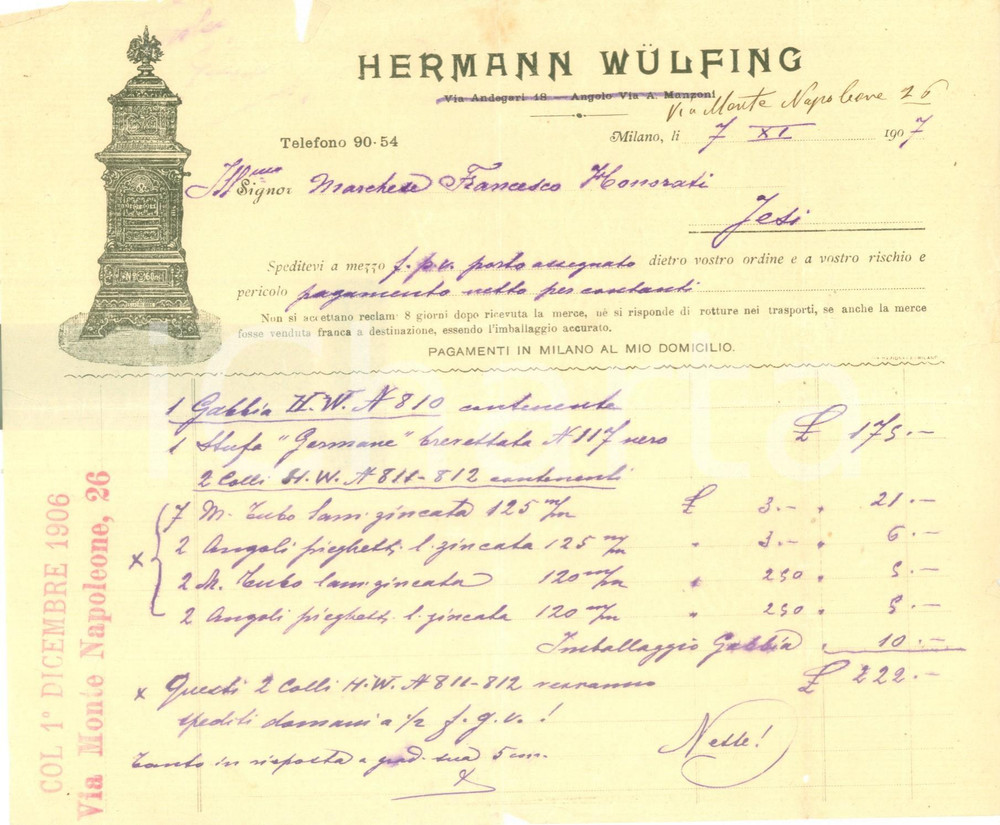 HERMANN WÜLFING
Via Andegari 18 — Angolo Via A. Manzoni
Via Monte Napoleone 26
Telefono 90-54
Milano, li 7 XI 1907
Ill.mo Signor Marchese Francesco Honorati
Jesi
Speditevi a mezzo f. p. v. porto assegnato dietro vostro ordine e a vostro rischio e
pericolo pagamento netto per contanti
Non si accettano reclami 8 giorni dopo ricevuta la merce, nè si risponde di rotture nei trasporti, se anche la merce
fosse venduta franca a destinazione, essendo l'imballaggio accurato.
PAGAMENTI IN MILANO AL MIO DOMICILIO.
1 Gabbia H.W. N 810 contenente
1 Stufa "Germane" brevettata N 117 nero £ 175.—
2 Colli H.W. N 811-812 contenenti
7 M. Tubo lam. zincata 125 m/m £ 3.— " 21.—
2 Angoli pieghett. l. zincata 125 m/m " 3.— " 6.—
x 2 M. Tubo lam. zincata 120 m/m " 250 " 5.—
2 Angoli pieghett. l. zincata 120 m/m " 250 " 5.—
Imballaggio Gabbia " 10.—
£ 222.—
x Questi 2 Colli H.W. N 811-812 verranno
spediti domani a 1/2 f. g. v. !
Netto!
Tanto in risposta a grad. sua 5 corr.
COL 1° DICEMBRE 1906
Via Monte Napoleone, 26